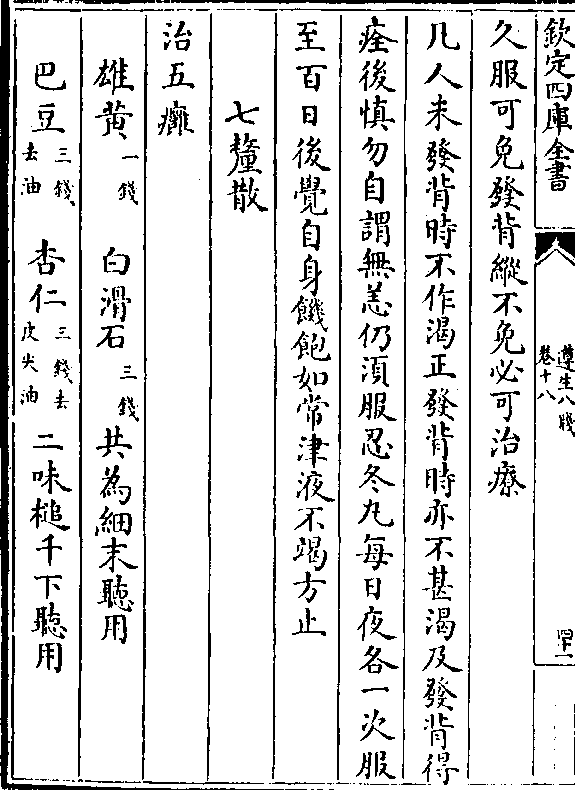 欽定四庫全書
遵生八牋
卷十八
四十一
久服可免發背縱不免必可治療
凡人未發背時不作渴正發背時亦不甚渴及發背得
痊後慎勿自謂無恙仍須服忍冬丸每日夜各一次服
至百日後覺自身饑飽如常津液不竭方止
七釐散
治五癰
雄黄一錢 白滑石三錢 共為細末聽用
巴豆三錢去油 杏仁三錢去皮尖油 二味槌千下聽用